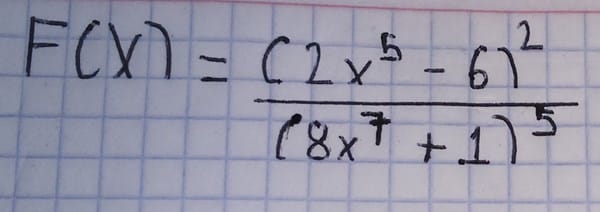 F(X) = (2x⁵ - 6)² / (8x⁷ + 1)⁵